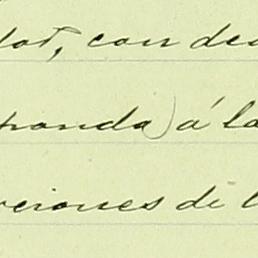 tot, con de
ponda) á la
ciones de l